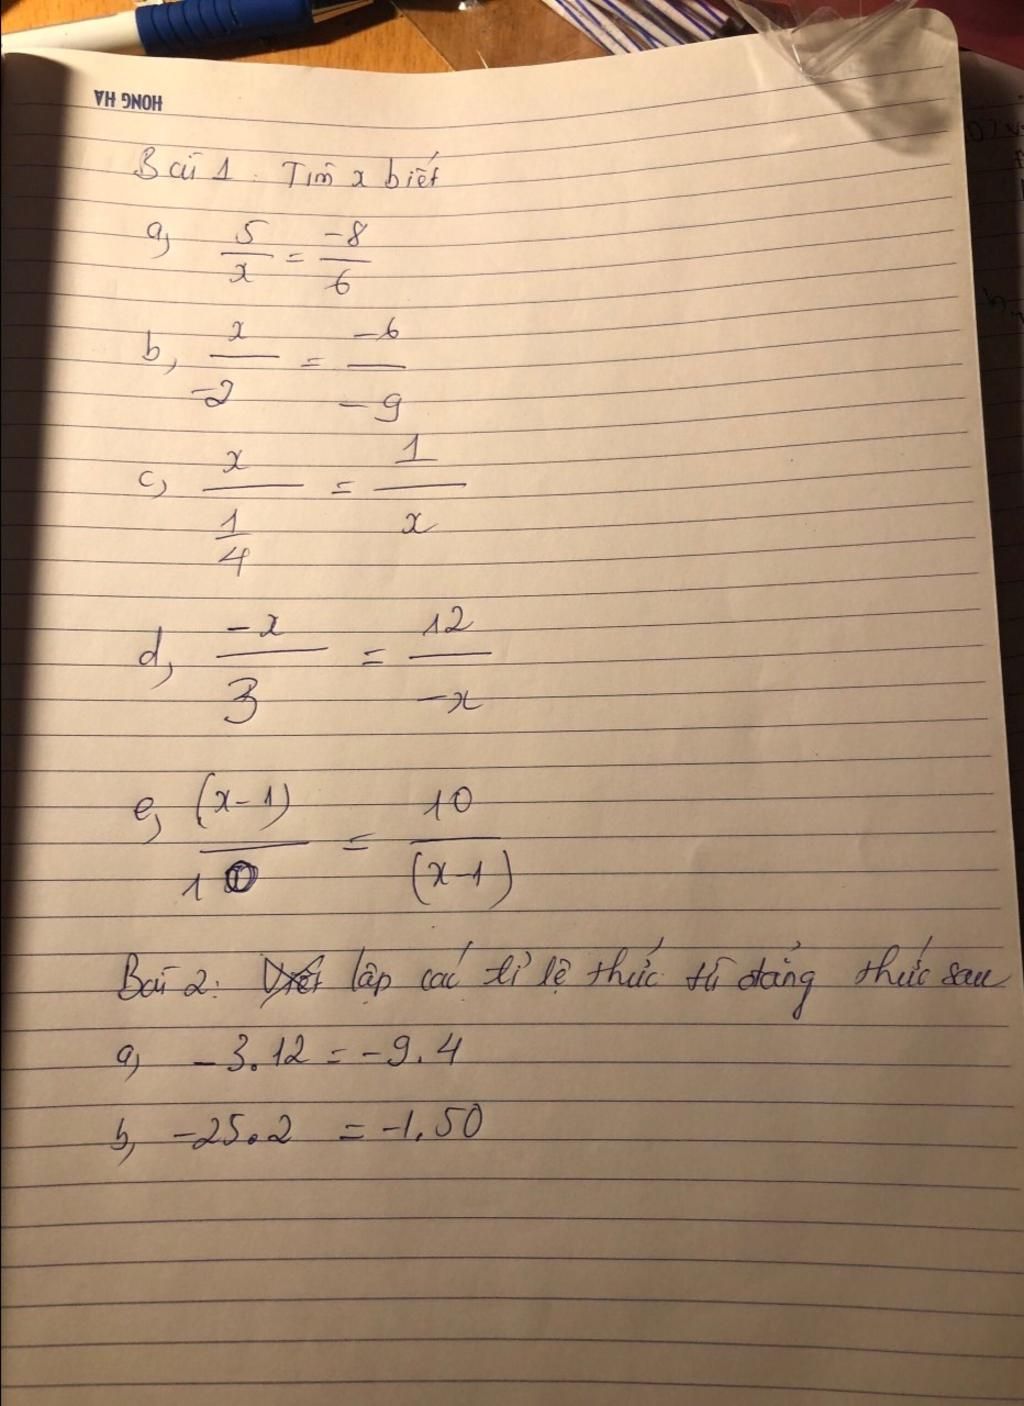 HONG HA
Bài 1. Tìm x biết
a, 5/x = -8/6
b, x/-2 = -6/-9
c, x/(1/4) = 1/x
d, -x/3 = 12/-x
e, (x-1)/10 = 10/(x-1)
Bài 2: lập các tỉ lệ thức từ đẳng thức sau
a, -3.12 = -9.4
b, -25.2 = -1.50